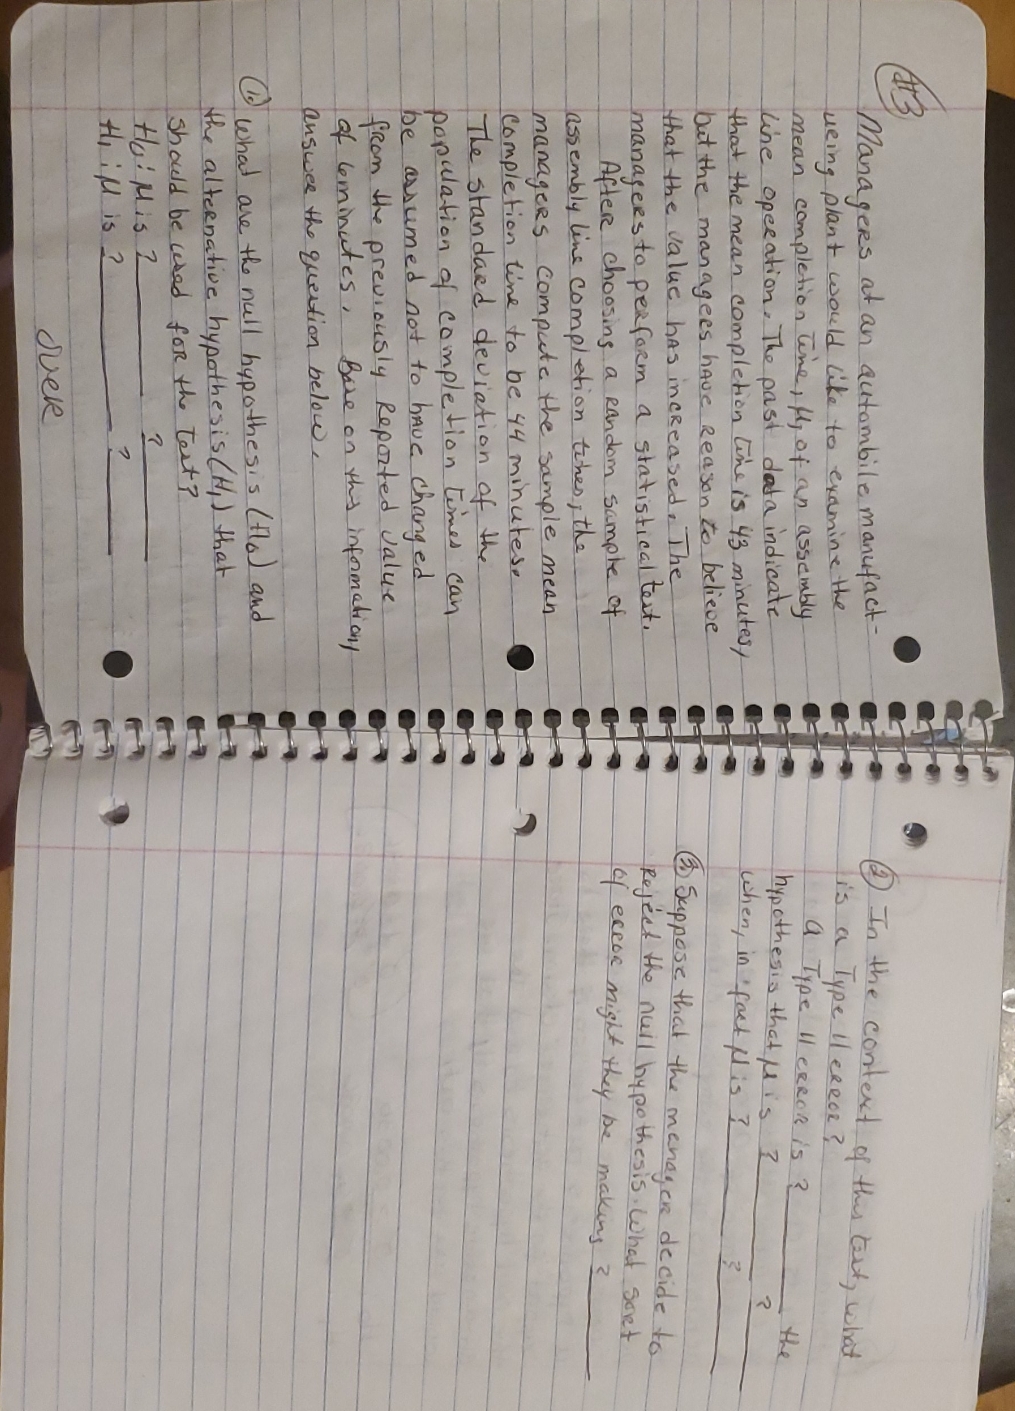 #3
Managers at an automobile manufact-
uring plant would like to examine the
mean completion time, μ, of an assembly
line operation. The past data indicate
that the mean completion time is 43 minutes,
but the managers have reason to believe
that the value has increased. The
managers to perform a statistical test.
After choosing a random sample of
assembly line completion times, the
managers compute the sample mean
completion time to be 44 minutes.
The standard deviation of the
population of completion times can
be assumed not to have changed
from the previously reported value
of 6 minutes. Base on this information,
answer the question below.
1. What are the null hypothesis (H₀) and
the alternative hypothesis (H₁) that
should be used for the test?
H₀: μ is ? ?
H₁: μ is ? ?
over
2 In the context of this test, what
is a Type II error?
a Type II error is ? the
hypothesis that μ is ? ?
when, in fact μ is ? ?
3 Suppose that the manager decide to
Reject the null hypothesis. What sort
of error might they be making ?